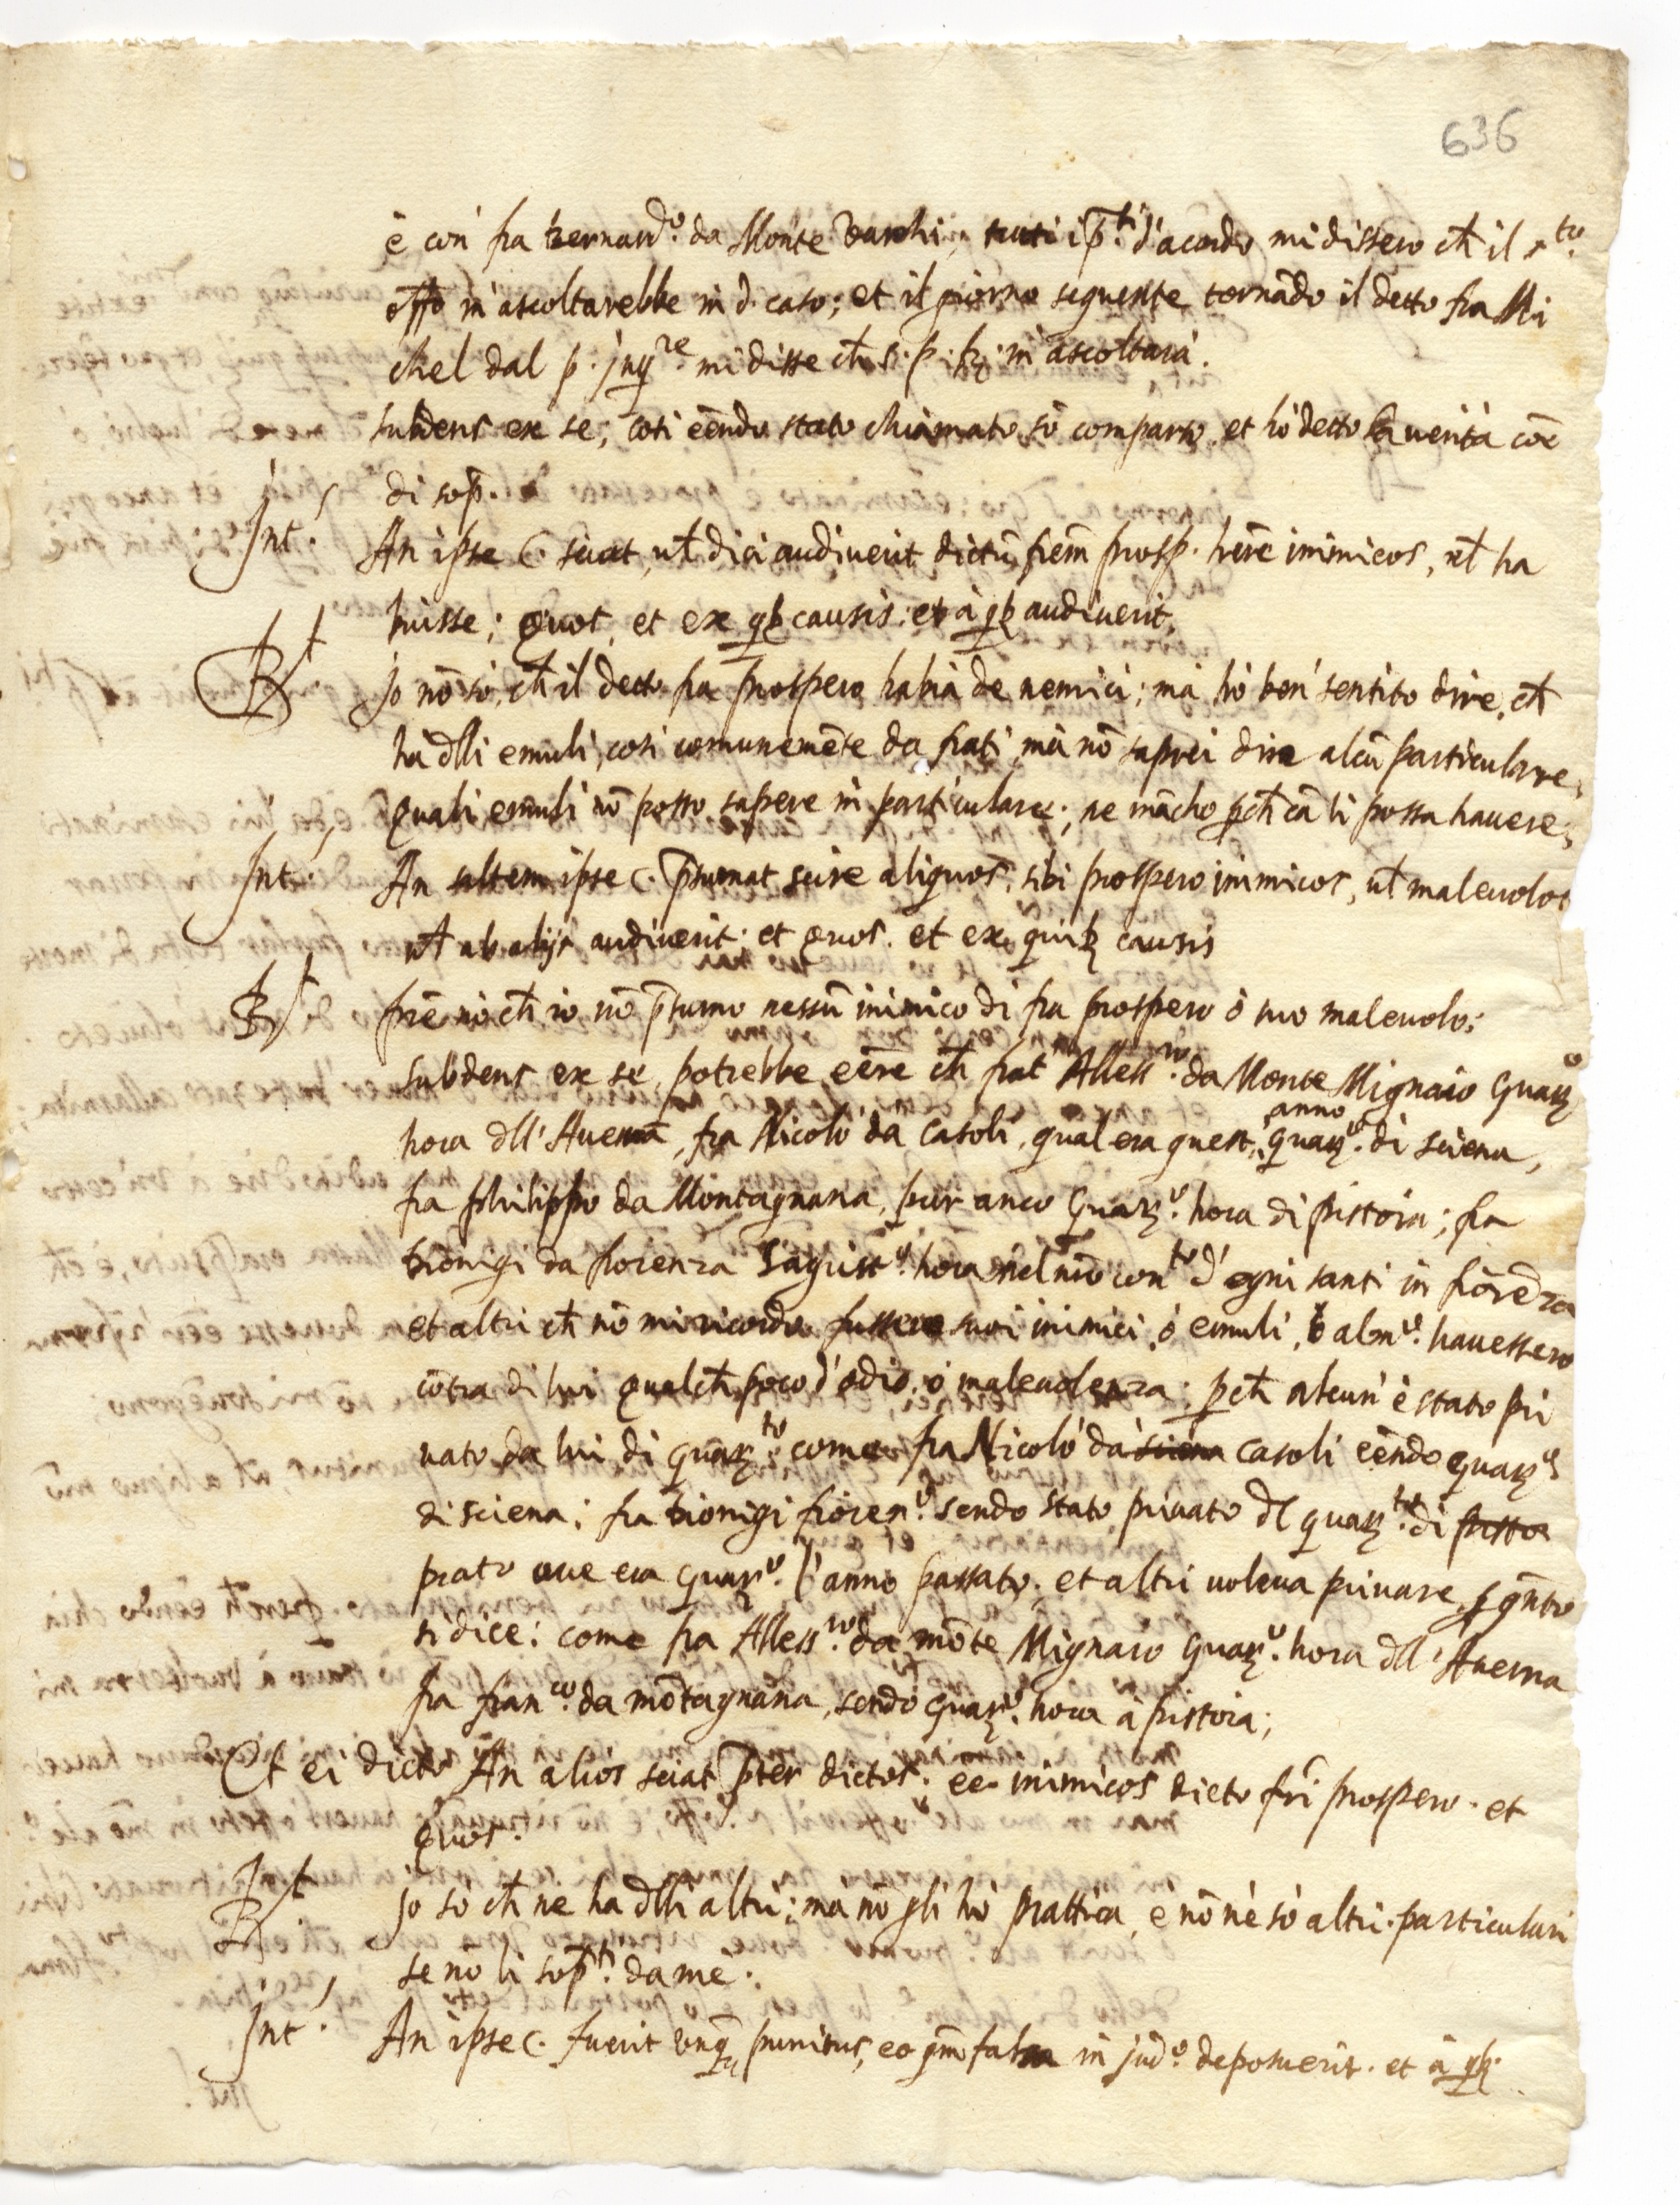 636
è con fra bernard.º da Monte Varchi, tutti i p.ti d'acordo mi dissero ch̃ il s.to
offo m'ascoltarebbe in d. caso; et il giorno seguente tornãdo il detto fra Mi
chel dal p. Inq.re mi disse ch̃ s. p. m'ascoltarà.
subdens ex se, così eẽndo stato chiamato, sõ comparso, et hò detto la verità coẽ
di sop.ª
Int. An ipse C. sciat, ul̃ dici audiverit dictũ frẽm prosp. hẽre inimicos, ul̃ ha
buisse; quos, et ex qb; causis: et à qb; audiverit.
Rt. Jo nõ sò, ch̃ il detto fra prospero habia de nemici; mà hò ben' sentito dire, ch̃
hà dlli emuli, così comunemẽte da frati, mà nõ saprei dire alcũ particulare,
quali emuli nõ posso sapere in particulare; ne mãcho pch̃ cã li possa havere;
Int. An saltem ipse C. p̃sumat scire aliquos, sibi prospero inimicos, ul̃ malevolos
ul̃ ab alijs audiverit; et quos. et ex quib; causis
Rt. prẽ nò ch̃ io nõ p̃sumo nessũ inimico di fra prospero ò suo malevolo;
subdens ex se, potrebbe eẽre ch̃ frat' Aless.ro da Monte Mignaio Guar.º
hora dll' Avernã, fra Nicolò da Casoli, qual era quest' anno guar.º di sciena,
fra philippo da Montagnana, pur anco Guar.º hora di pistoia; fra
Dionigi da fiorenza Sagrist.º hora nel nrõ con.to d'ogni santi in fiorẽza
et altri ch̃ nõ mi ricordo fussero suoi inimici, ò emuli, ò alm.º havessero
cõtra di lui qualch̃ poco d'odio, ò malevolenza; pch̃ alcun' è stato pri
vato da lui di guar.to come fra Nicolò da sciena Casoli eẽndo guar.º
di sciena; fra Dionigi fioren.º sendo stato privato dl guar.to di pistoa
prato ove era guar.º l'anno passato; et altri voleva privare, p quãto
si dice: come fra Aless.ro da mõte Mignaio Guar.º hora dll' Averna
fra fran.co da mõtagnana, sendo guar.º hora à pistoia;
Et ei dicto An alios sciat p̃ter dictos; eẽ inimicos dicto frĩ prospero. et
quos.
Rt. Jo sò ch̃ ne ha dlli altri; mà nõ gli hò prattica, è nõ nè sò altri particulari
se nõ li sop.ti da me.
Int. An ipse C. fuerit unq̃ punitus, eo qm̃ falsa in jud.º deposuerit. et à qb;